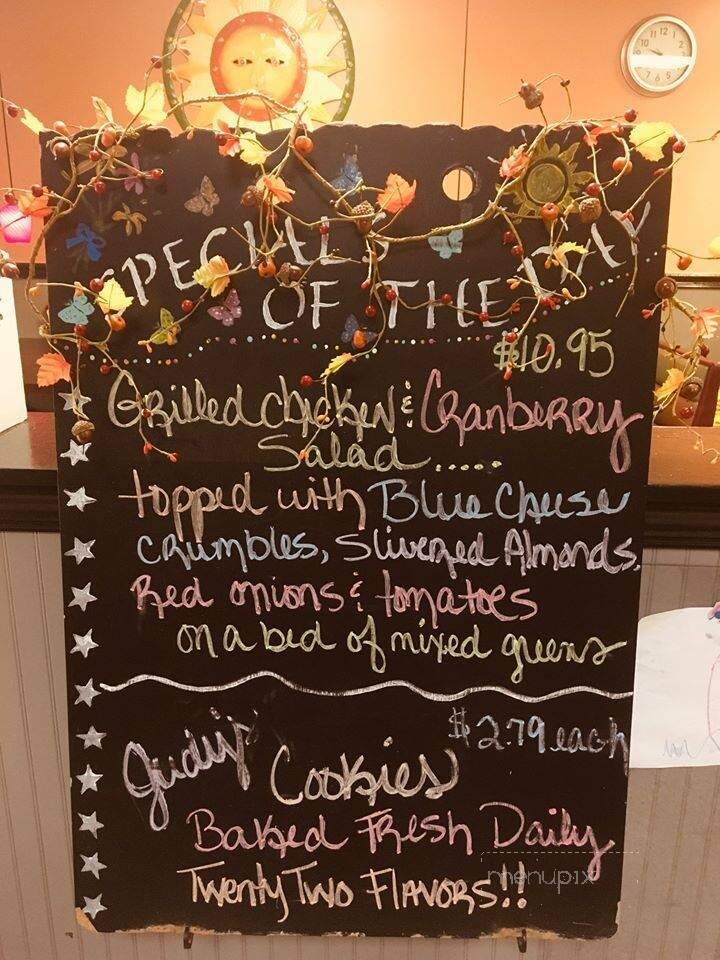 SPECIALS
OF THE DAY
$10.95
Grilled chicken & Cranberry
Salad.....
topped with Blue Cheese
crumbles, Slivered Almonds,
Red onions & tomatoes
on a bed of mixed greens
$2.79 each
Judy's
Cookies
Baked Fresh Daily
Twenty Two Flavors!!
menupix